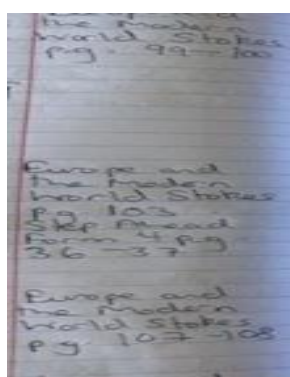 the Modern
World Stokes
pg - 99 - 100
Europe and
the Modern
World Stokes
pg 103
Step Ahead
Form 4 pg -
36 - 37
Europe and
the Modern
World Stokes
pg 107 - 108